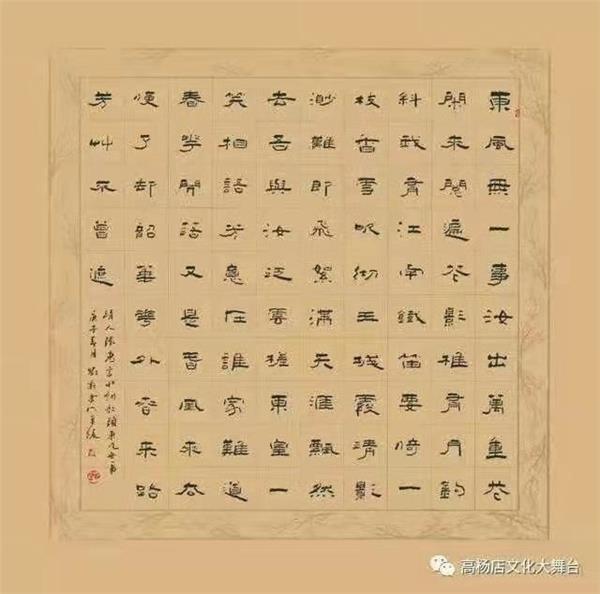 東風無一事妝出萬重花
閑來閱遍花影惟有月鉤
斜我有江南鐵笛要倚一
枝香雪吹徹玉城霞清影
渺難即飛絮滿天涯飄然
去吾與汝泛雲槎東皇一
笑相語芳意在誰家難道
春華開落又是春風來去
便了却韶華華外春來路
芳艸不曾遮
清人張惠言水調歌頭東風無一事
庚子春月
高杨店文化大舞台